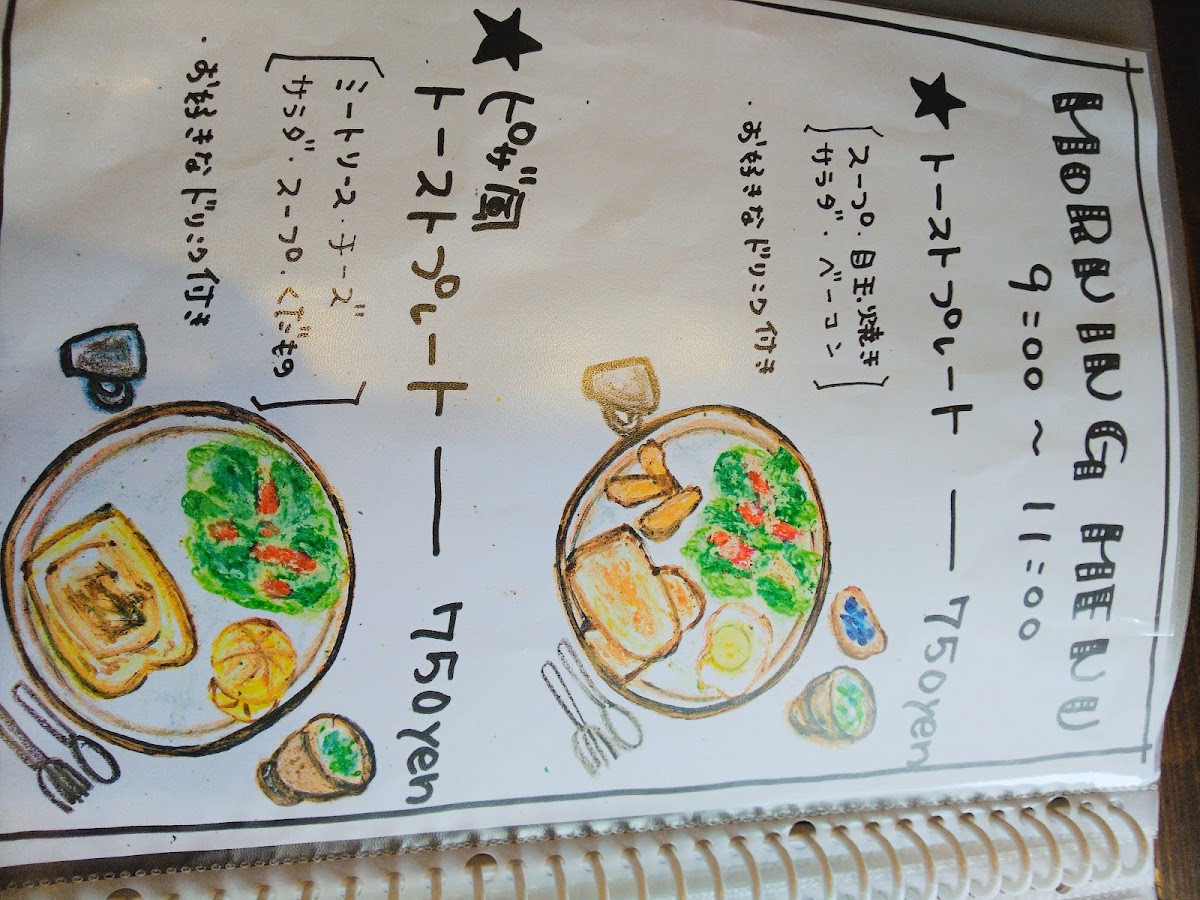 MORNING MENU
9:00 ~ 11:00
★トーストプレート — 750yen
[スープ・目玉焼き
サラダ・ベーコン]
・お好きなドリンク付き
★ピザ風
トーストプレート — 750yen
[ミートソース・チーズ
サラダ・スープ・くだもの]
・お好きなドリンク付き